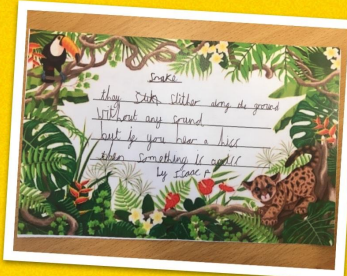 Snake
they slither along the ground
without any sound
but if you hear a hiss
then something is
by Isaac P